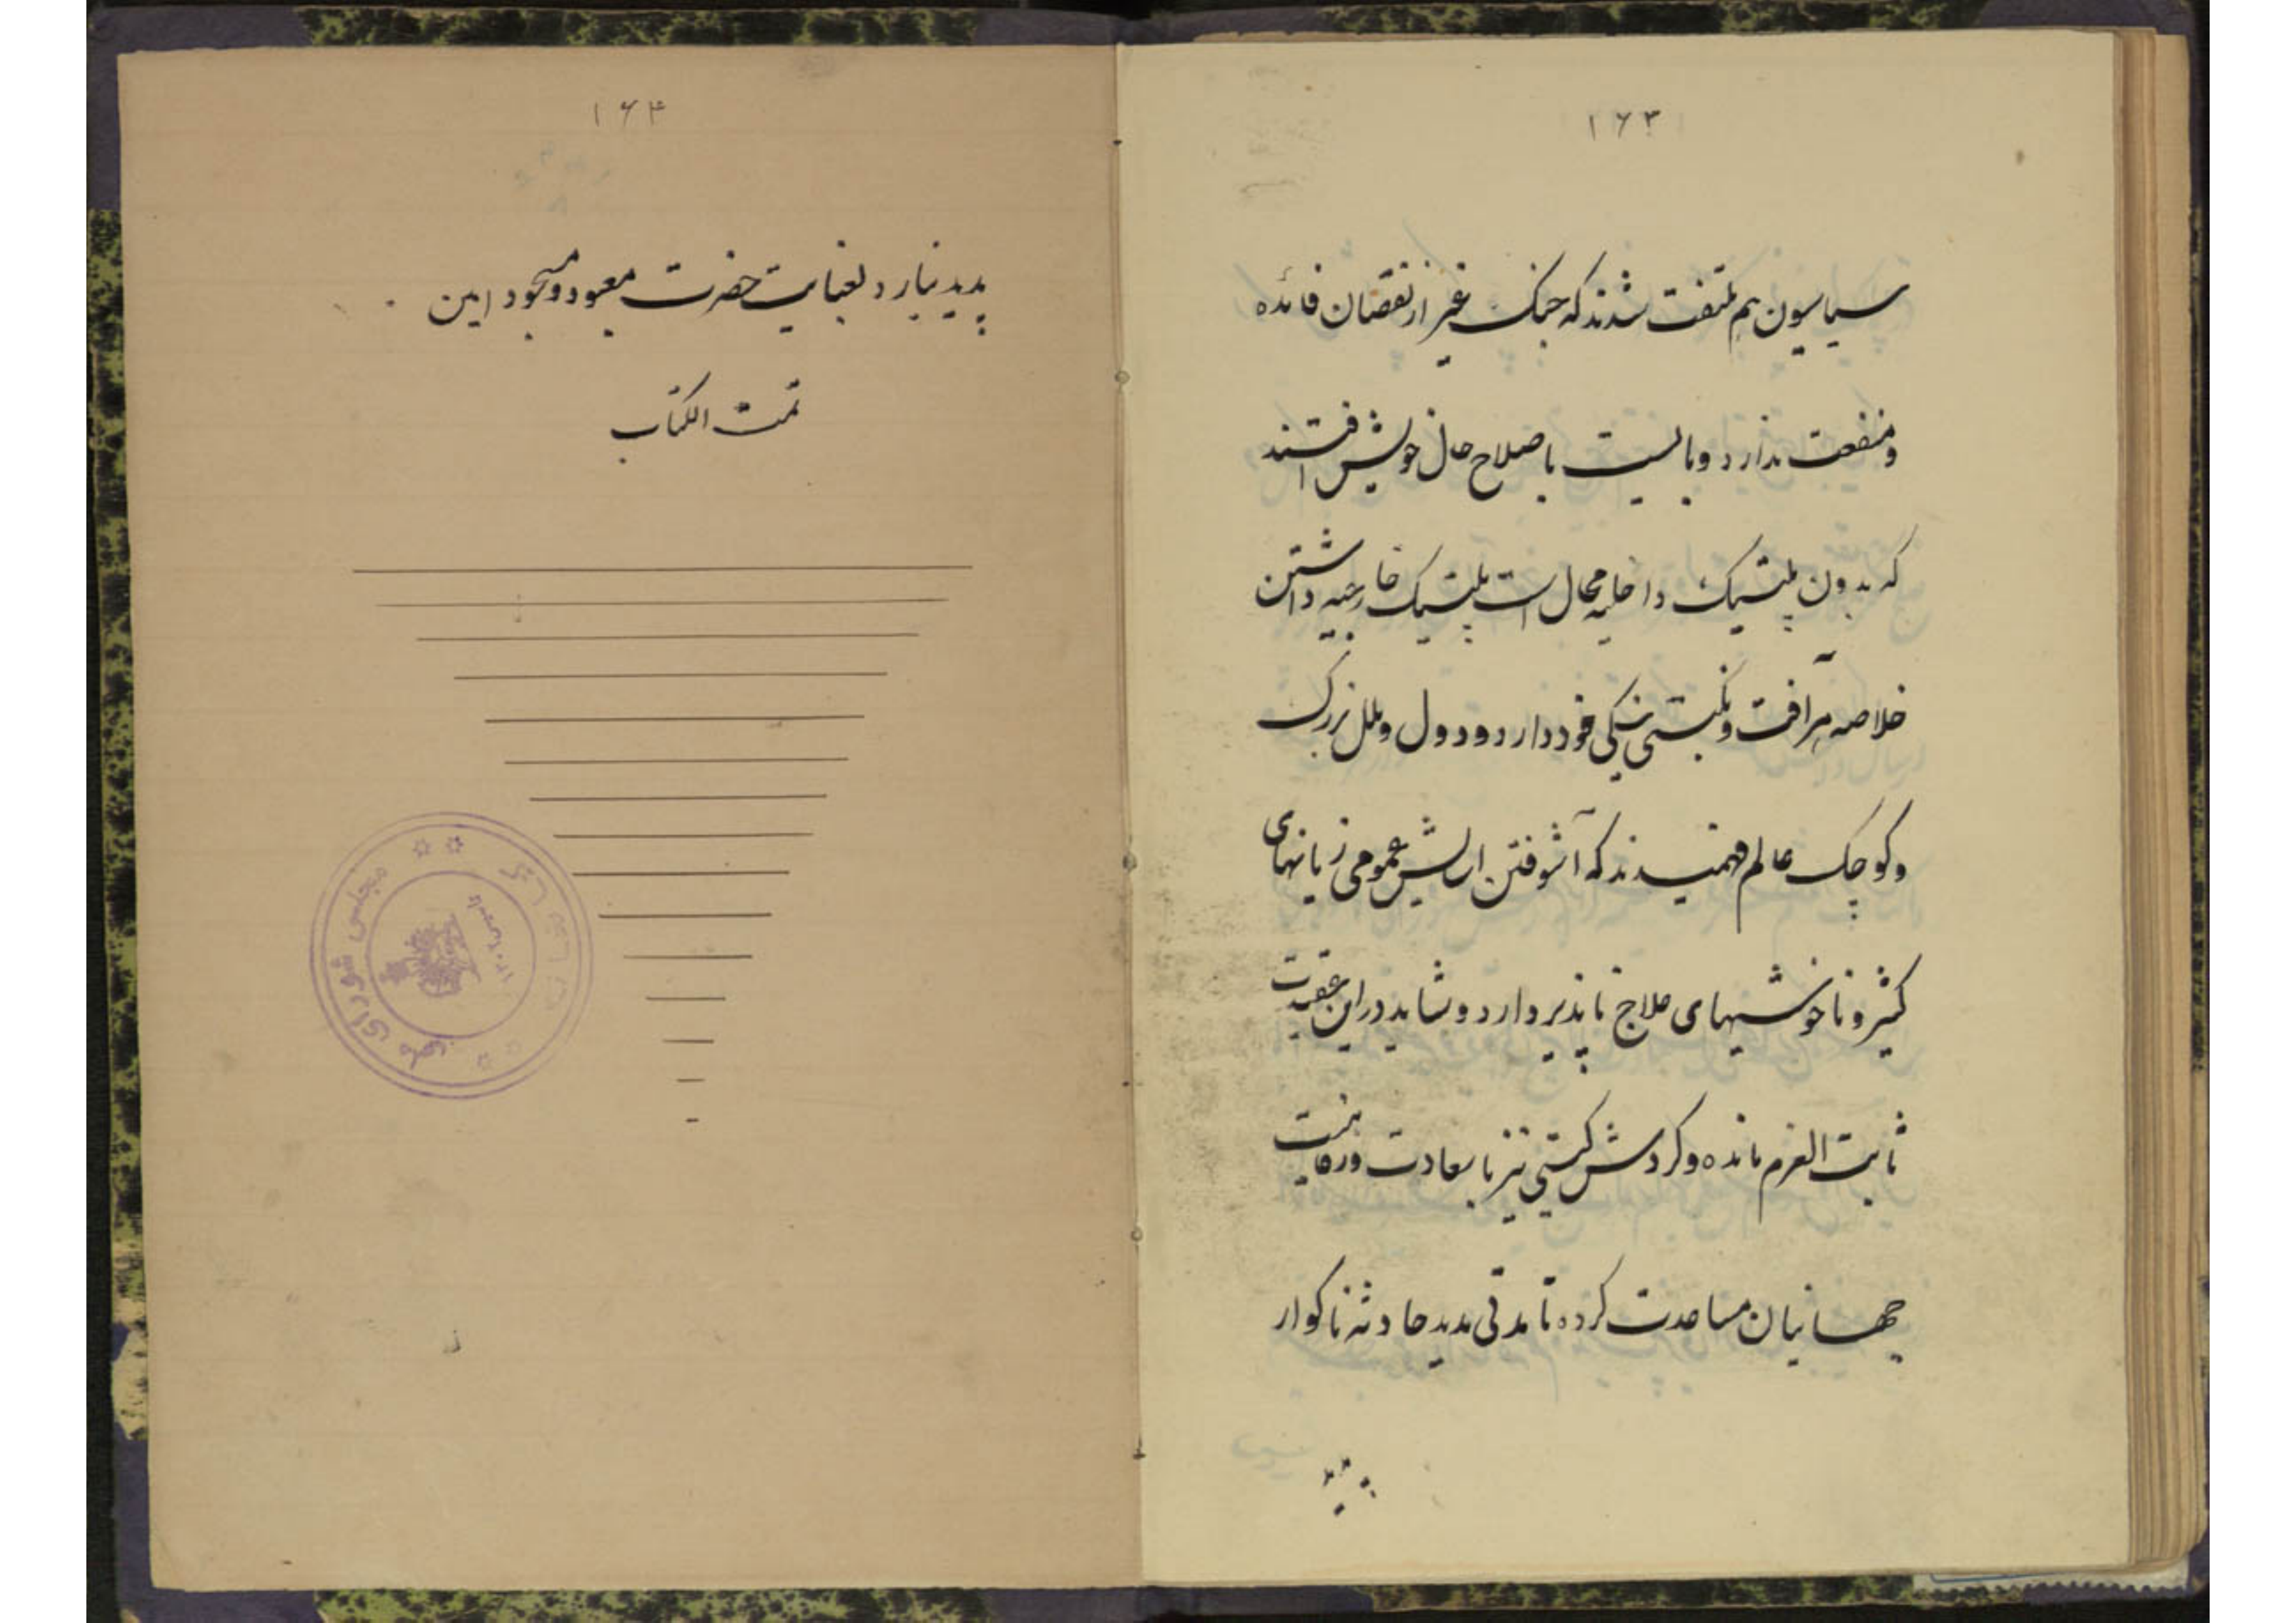 ۱۶۳
سیاسیون هم ملتفت شدند که جنک غیر از نقصان فائده
و منفعت ندارد و بایست باصلاح حال خویش افتند
که بدون پلتیک داخلیه محال است پلتیک خارجیه داشتن
خلاصه هر آفت و نکبتی نیکی خود دارد و دول و ملل بزرک
و کوچک عالم فهمیدند که آشوفتن اسایش عمومی زیانهای
کثیر و ناخوشیهای علاج ناپذیر دارد و شاید در این عقیدت
ثابت العزم مانده و کردش کیتی نیز با سعادت و رفاهیت
جهانیان مساعدت کرده تا مدتی مدید حادثه ناکوار
پدید
۱۶۴
پدید نیارد بعنایت حضرت معبود و مسجود امین
تمت الکتاب
مجلس شورای ملی